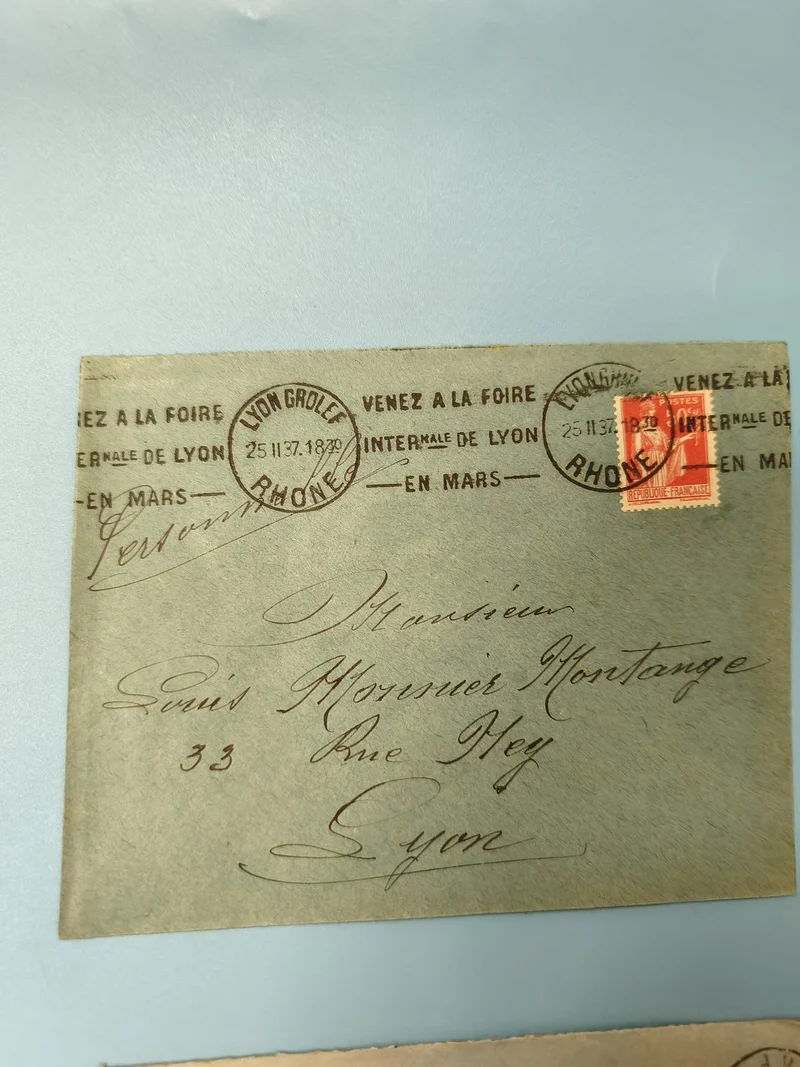 EZ A LA FOIRE
ERNALE DE LYON
-EN MARS-
LYON GROLEE
25 II 37.1830
RHONE
VENEZ A LA FOIRE
INTERNALE DE LYON
-EN MARS-
LYON
25 II 37.1830
RHONE
POSTES
50c
REPUBLIQUE-FRANÇAISE
VENEZ A LA
INTERNALE DE
-EN MA
Personnelle
Monsieur
Louis Monnier Montange
33 Rue Ney
Lyon